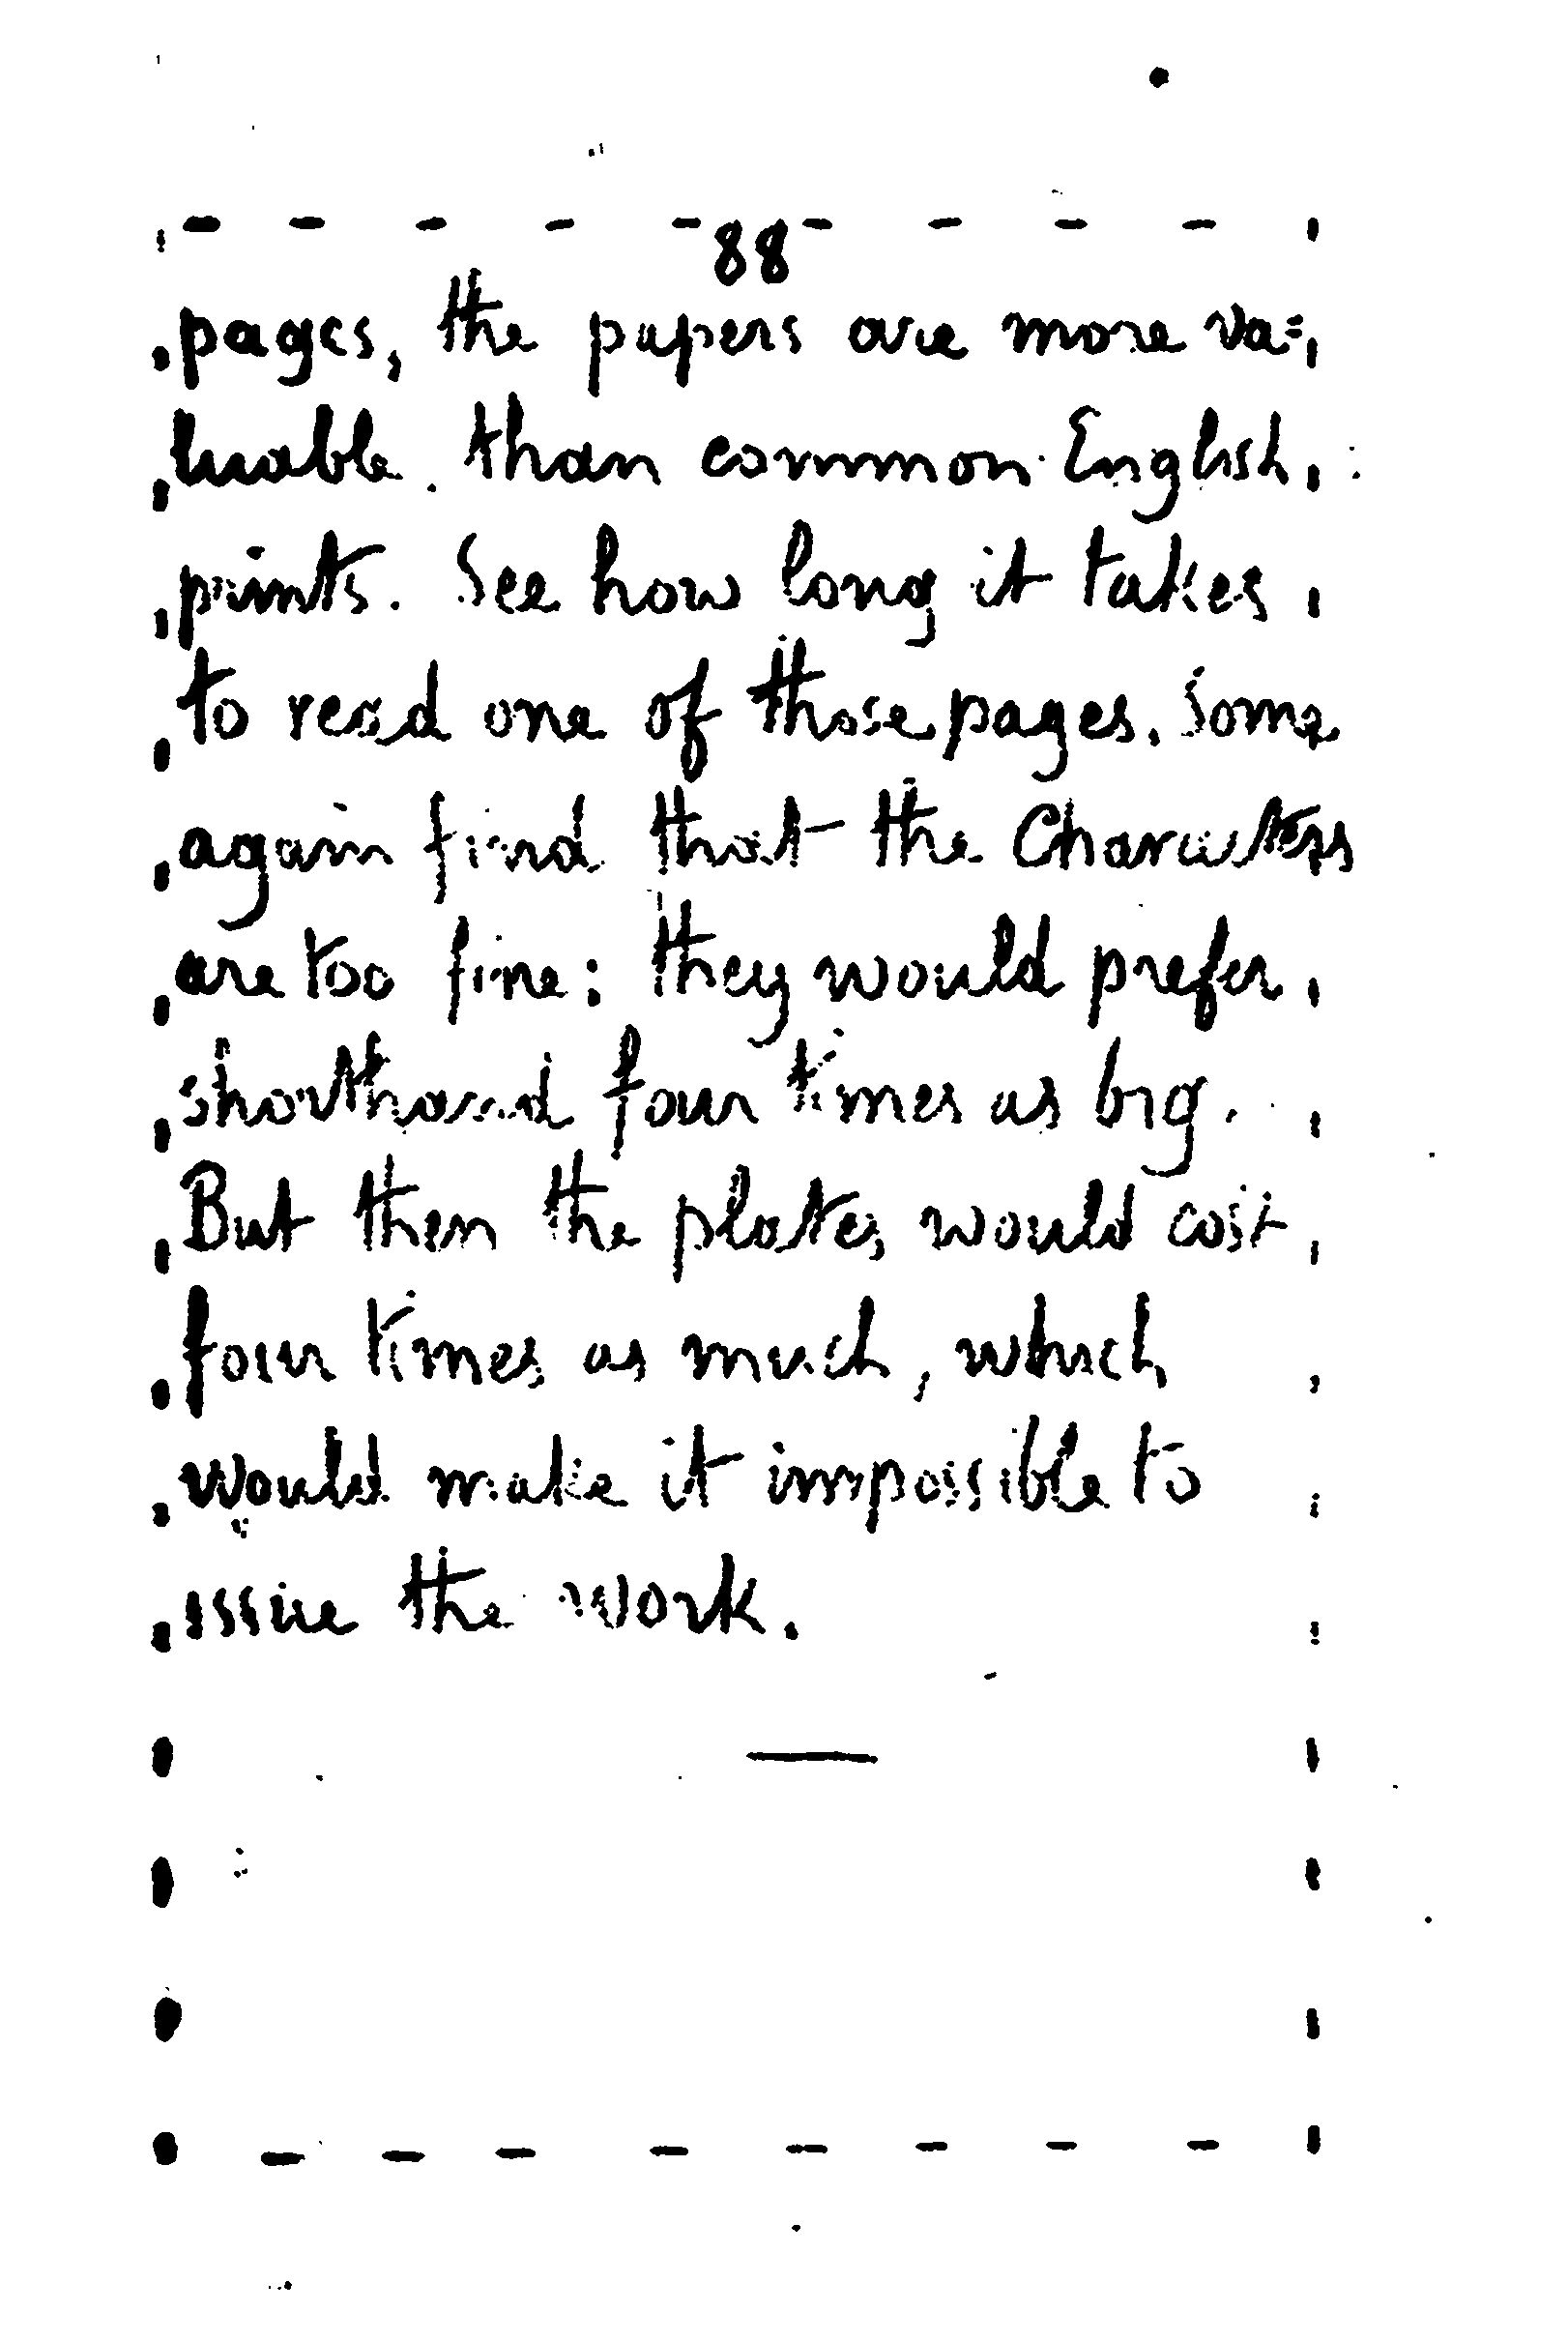 88
pages, the papers are more va=
luable than common English
prints. See how long it takes
to read one of those pages. Some
again find that the Characters
are too fine: they would prefer
shorthand four times as big.
But then the plates would cost
four times as much, which
would make it impossible to
issue the work.